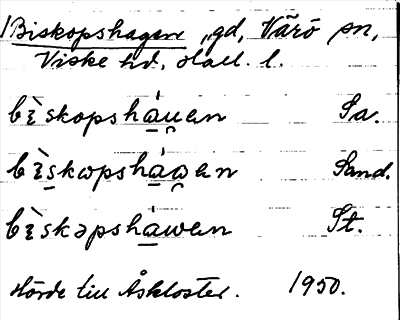 Biskopshagen, gd, Värö sn,
Viske hd, Hall. l.
bı̀skopshá̱u̯en Sa.
bı̀s̱kωpshá̱ω̯en Sand.
bı̀skəpshá̱wen St.
Hörde till Åskloster. 1950.